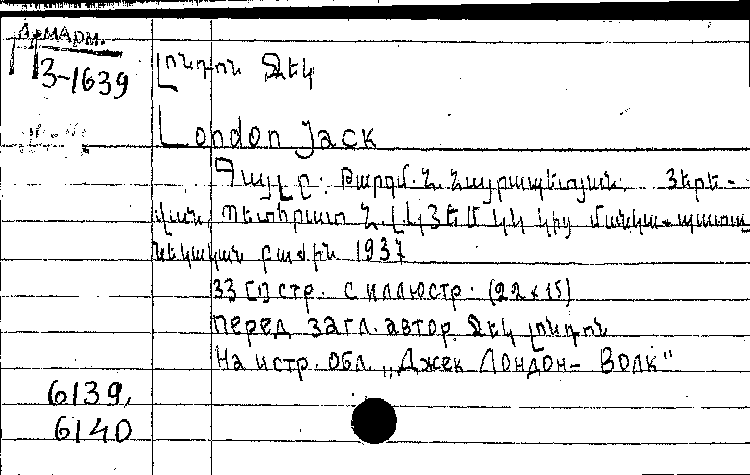 АрмАрм.
3-1639
Լոնդոն Ջեկ
London Jack
Գայլը: Թարգմ. Հ. Հայրապետյան. Յերե-
վան, Պետհրատ Հ. ԼԿՅԵՄ ԿԿ կից մանկա-պատա
նեկական բաժին 1937
33 [1] стр. с иллюстр. (22 x 15)
Перед загл. автор Ջեկ Լոնդոն
На истр. обл. „Джек Лондон- Волк"
6139,
6140